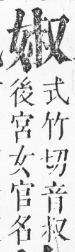 婌
式竹切音叔
後宮女官名